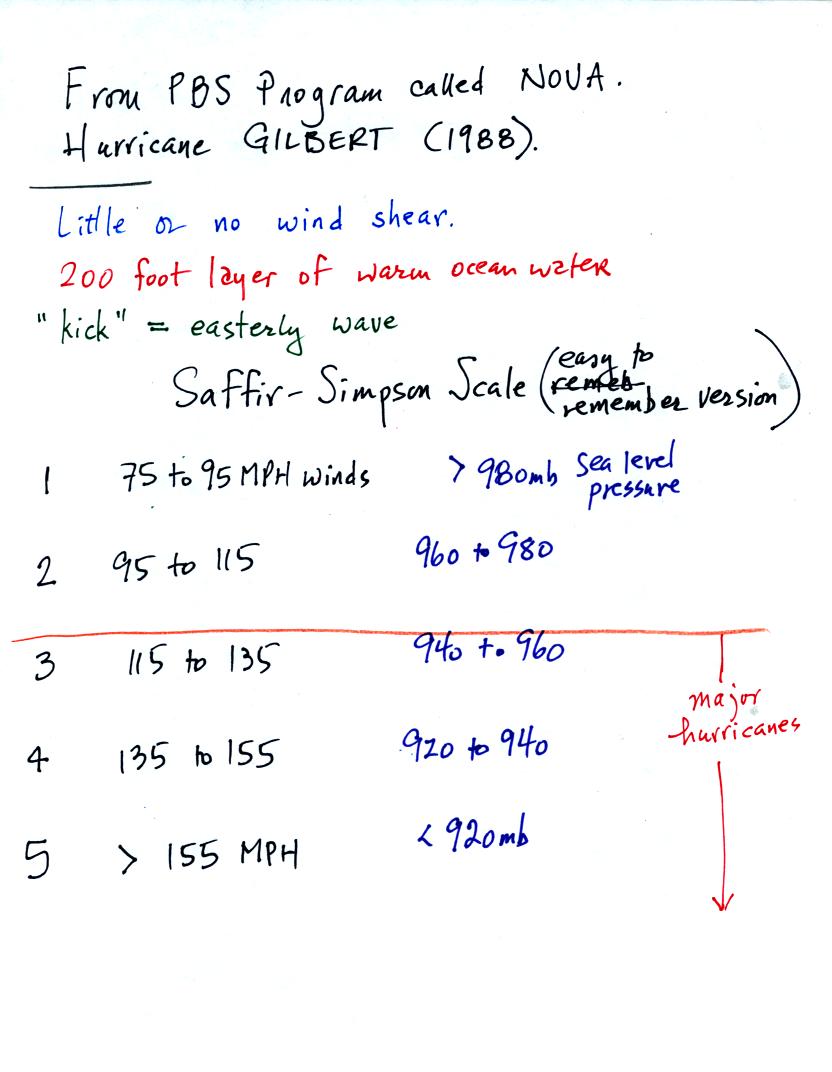 From PBS Program called NOVA.
Hurricane GILBERT (1988).
Little or no wind shear.
200 foot layer of warm ocean water
"kick" = easterly wave
Saffir-Simpson Scale (easy to
remember version)
1 75 to 95 MPH winds > 980mb Sea level
pressure
2 95 to 115 960 to 980
3 115 to 135 940 to 960
major
hurricanes
4 135 to 155 920 to 940
5 > 155 MPH < 920mb